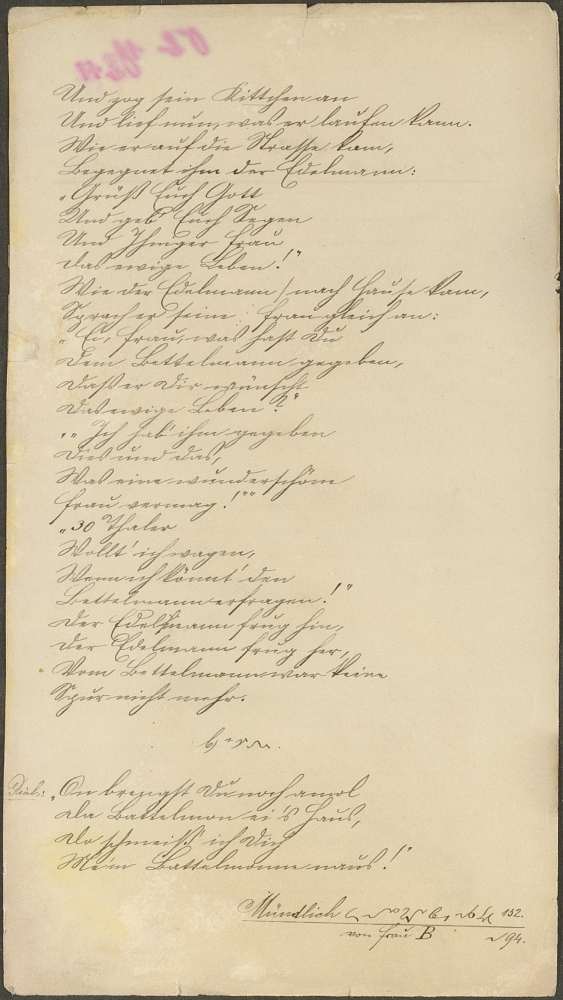 Und zog sein Kittchen an
Und lief nun, was er laufen kann.
Wie er auf die Strasse kam,
Begegnet ihm der Edelmann:
„Grüß Euch Gott
Und geb' Euch Segen
Und Ihrniger Frau
Das ewige Leben!"
Wie der Edelmann nach Hause kam,
Sprach er seine Frau gleich an:
„Ei, Frau, was hast Du
Dem Bettelmann gegeben,
Daß er Dir wünscht
Das ewige Leben?"
„„Ich hab' ihm gegeben
Dies und das,
Was eine wunderschöne
Frau vermag!""
„30 Thaler
Wollt' ich wagen,
Wenn ich könnt' den
Bettelmann erfragen!"
Der Edelmann frug hin,
Der Edelmann frug her,
Vom Bettelmann war keine
Spur nicht mehr.
„On brengst Du noch amol
Da Battelmon ei 's Haus,
Do schmeiß ich Dich
Mei'm Battelmonne naus!"
Mündlich 132.
von Frau B 94.